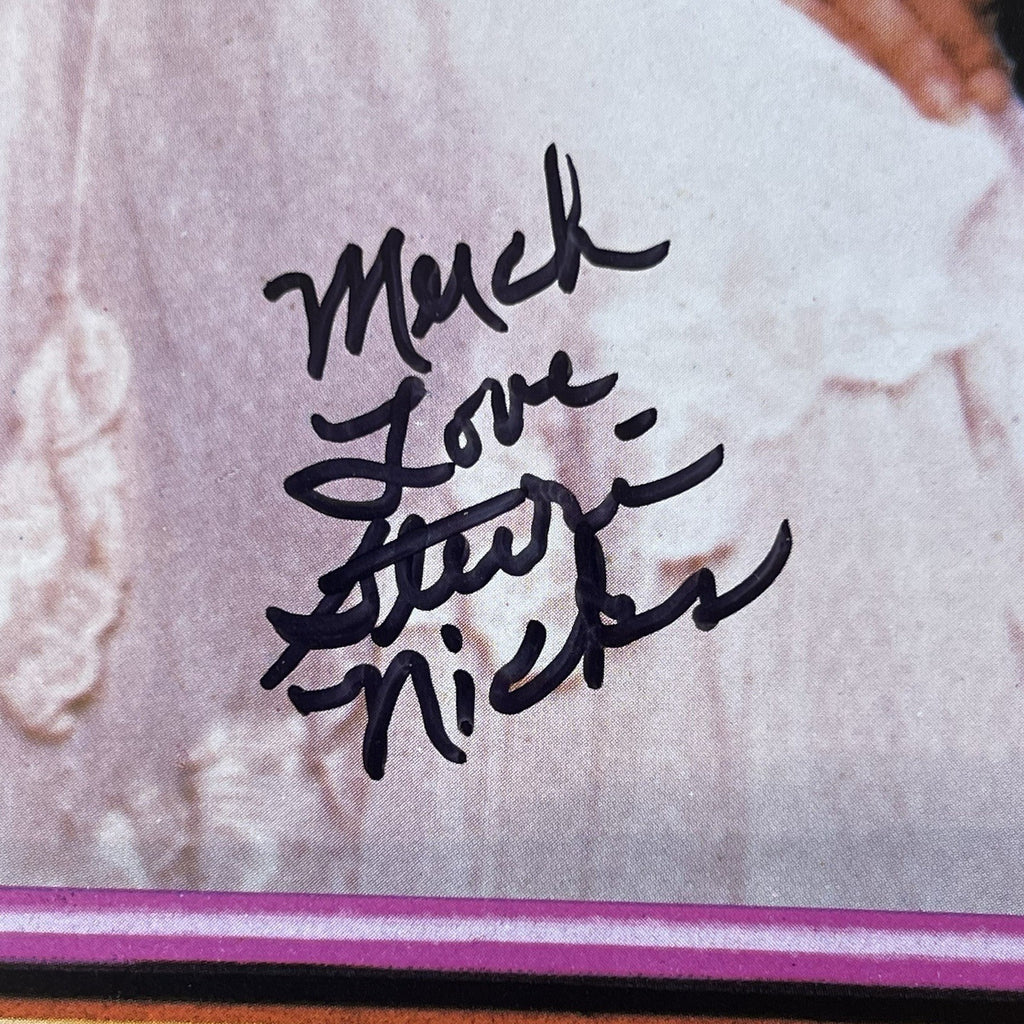 Merck
Love
Stevie
Nicks